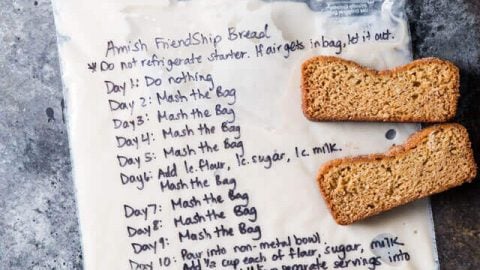 Amish FriendShip Bread
* Do not refrigerate starter. If air gets in bag, let it out.
Day 1: Do nothing
Day 2: Mash the Bag
Day 3: Mash the Bag
Day 4: Mash the Bag
Day 5: Mash the Bag
Day 6: Add 1c. flour, 1c. sugar, 1c. milk.
Mash the Bag
Day 7: Mash the Bag
Day 8: Mash the Bag
Day 9: Mash the Bag
Day 10: Pour into non-metal bowl
Add 1/2 cup each of flour, sugar, milk
separate servings into